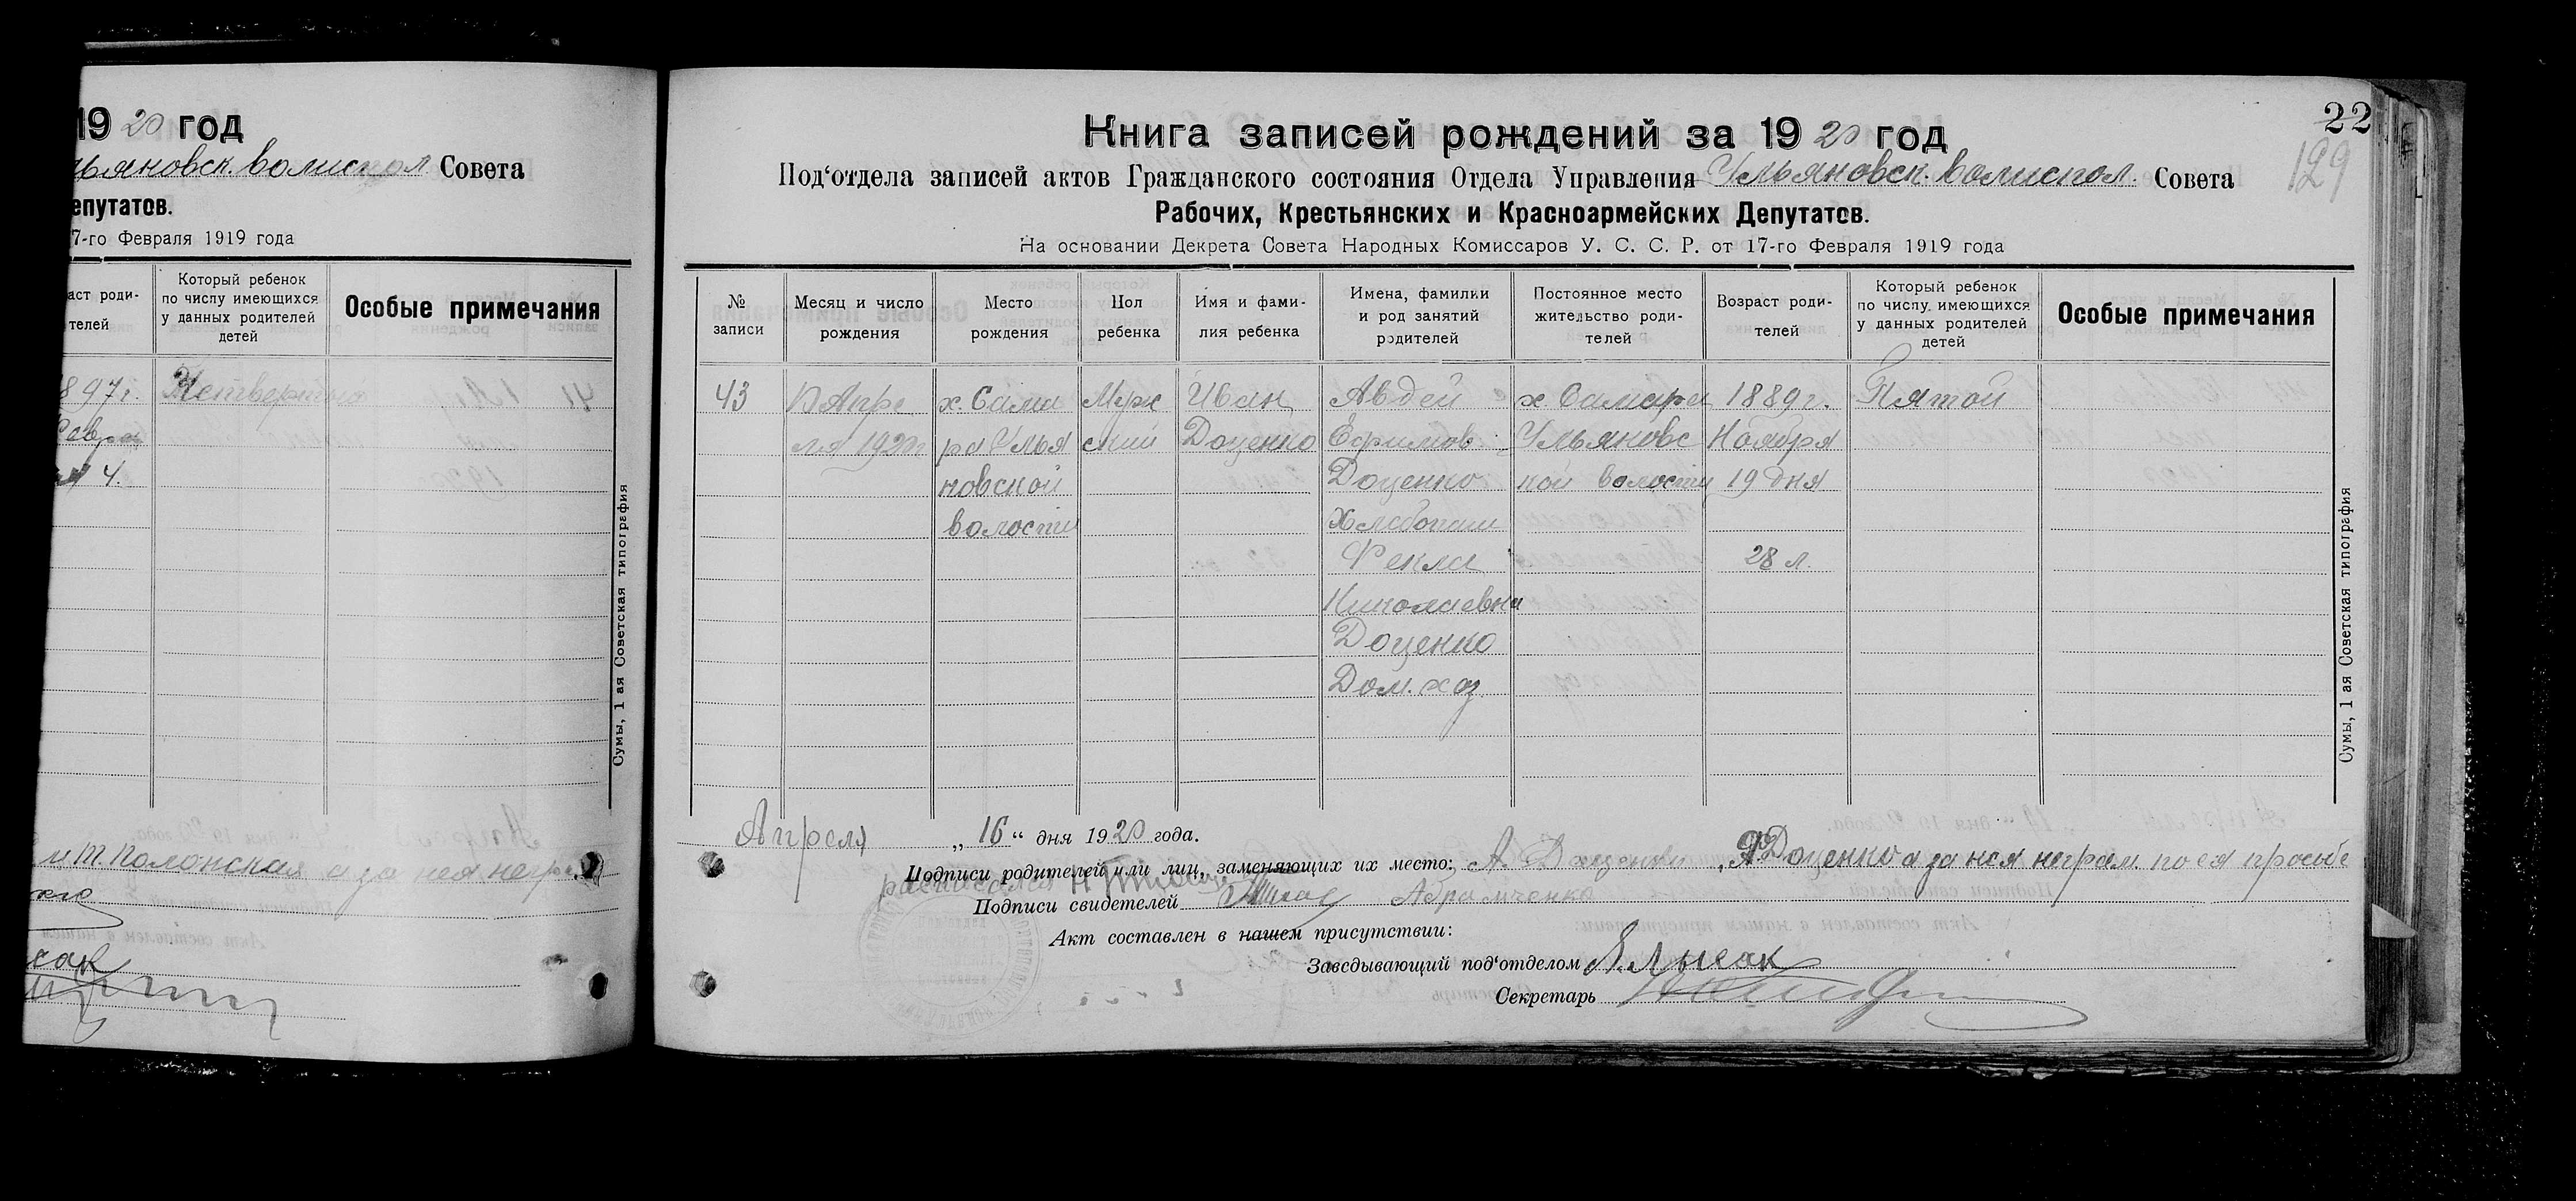 19 20 год
ьяновск. волиспол. Совета
епутатов.
7-го Февраля 1919 года
аст роди-
телей
Который ребенок
по числу имеющихся
у данных родителей
детей
Особые примечания
897г. Четвертый
Февра
ля 4.
Сумы, 1 ая Советская типография
и Т. Полонская а за нея негр
22
129
Книга записей рождений за 19 20 год
Под‘отдела записей актов Гражданского состояния Отдела Управления Ульяновск. волиспол. Совета
Рабочих, Крестьянских и Красноармейских Депутатов.
На основании Декрета Совета Народных Комиссаров У. С. С. Р. от 17-го Февраля 1919 года
№
записи
Месяц и число
рождения
Место
рождения
Пол
ребенка
Имя и фами-
лия ребенка
Имена, фамилии
и род занятий
родителей
Постоянное место
жительство роди-
телей
Возраст роди-
телей
Который ребенок
по числу имеющихся
у данных родителей
детей
Особые примечания
43 Апре х. Сама Муж Иван Авдей х. Самара 1889г. Пятой
ля 1920г ра Улья ский Доценко Ефимов. Ульяновс Ноября
новской Доценко кой волости 19 дня
волости Хлебопаш
Фекла 28 л.
Николаевна
Доценко
Дом. хоз.
Сумы, 1 ая Советская типография
Апреля „ 16 “ дня 19 20 года.
Подписи родителей или лиц, заменяющих их место: А. Доценко, Доценко а за нея неграм. по ея просьбе
расписался
Подписи свидетелей Абрамченко
Акт составлен в нашем присутствии:
Заведывающий под‘отделом Лысак
Секретарь